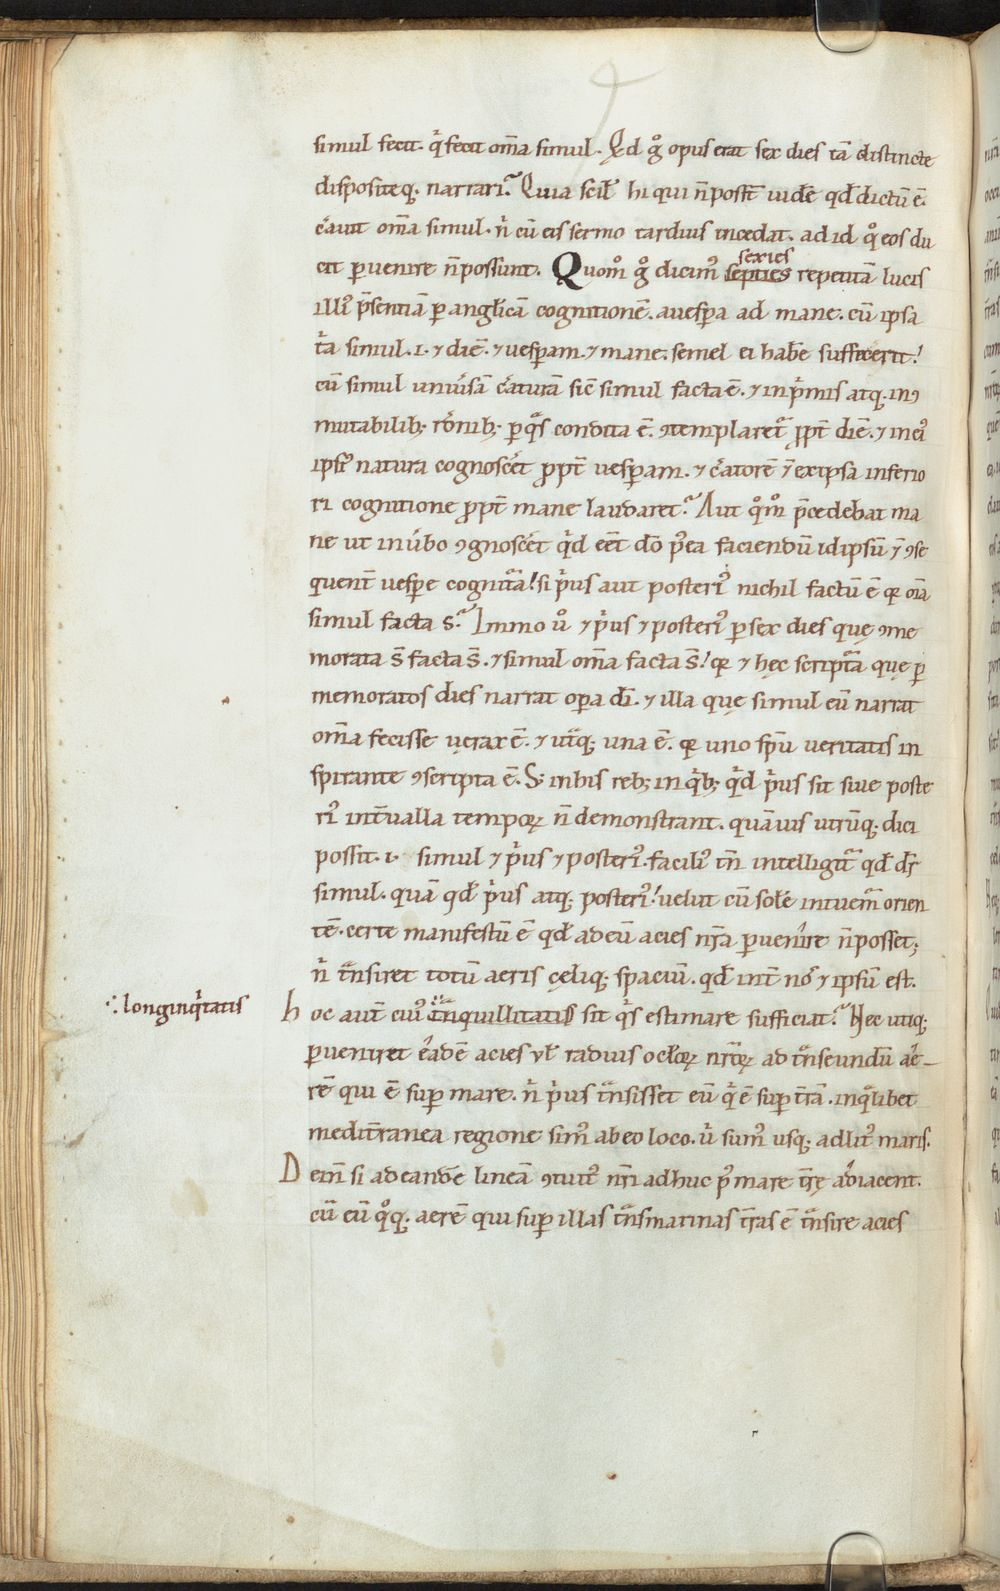 simul fecit. qͥ fecit om̅a simul. Qd gͦ opus erat sex dies ta̅ distincte
dispositeq;. narrari? Quia scil̅ hi qui n̅ posst̅ uide̅ qd̅ dictu̅ e̅.
c̓auit om̅a simul. nͥ cu̅ eis sermo tardius incedat. ad id qͦ eos du
cit ꝑuenire n̅ possunt. Quom̊ gͦ dicim᾿ septies repetita̅ lucis
sexies
illi᾿ p̅sentia̅ ꝑ anglica̅ cognitione̅. a uesꝑa ad mane. cu̅ ipsa
t̓a simul .i. ⁊ die̅. ⁊ uesꝑam. ⁊ mane. semel ei habe̅ suffecerit!
cu̅ simul uniu̓sa̅ c̓atura̅ sic̅ simul facta e̅. ⁊ in pͥmis atq;. in ꝯ
mutabilib; ro̅nib; ꝑ qͣs condita e̅. ꝯtemplaret᾿ ꝓpt̅ die̅. ⁊ in ei᾿
ipsi᾿ natura cognosc̓et ꝓpt̅ uesꝑam. ⁊ c̓atore̅ ⁊̅ ex ipsa inferio
ri cognitione ꝓpt̅ mane laudaret᾿? Aut qͦm̊ p̅cedebat ma
ne ut in u̓bo ꝯgnosc̓et qͥd ee̅t do̅ p᾿ea faciendu̅ id ipsu̅ ⁊̅ ꝯse
quent̅ uesꝑe cognitͣa! si pͥus aut posteri᾿ nichil factu̅ e̅ qꝛ oi̅a
simul facta s̅? Immo uͦ ⁊ pͥus ⁊ posteri᾿ ꝑ sex dies quę ꝯme
morata s̅ facta s̅. ⁊ simul om̅a facta s̅! qꝛ ⁊ hęc scriptͣa quę ꝑ
memoratos dies narrat oꝑa di̅. ⁊ illa quę simul eu̅ narrat
om̅a fecisse uerax e̅. ⁊ utͣq; una e̅. qꝛ uno sp̅u ueritatis in
spirante ꝯscripta e̅. S; in his reb; in qͥb; qͥd pͥus sit siue poste
ri᾿ int̅ualla tempoꝝ n̅ demonstrant. qua̅uis utru̅q;. dici
possit .i. simul ⁊ pͥus ⁊ posteri᾿. facili᾿ tn̅ intelligitͣ qd̅ dr̅
simul. qua̅ qd̅ pͥus atq; posteri᾿! uelut cu̅ sole̅ intuem̅ orien
te̅. certe manifestu̅ e̅ qd̅ ad eu̅ acies nr̅a ꝑuenire n̅ posset;
nͥ tͣnsiret totu̅ aeris cęliq; spaciu̅. qd̅ int̅ no᾿ ⁊ ipsu̅ est.
∴ longinqͥtatis
hoc aut̅ cui᾿ tͣnquillitatis sit qͥs estimare sufficiat? Nec utiq;
ꝑueniret e᾿ade̅ acies vl̅ radius ocl̅oꝝ nr̅oꝝ ad tͣnseundu̅ ae᾿
re̅ qui e̅ suꝑ mare. nͥ pͥus tͣnsisset eu̅ qͥ e̅ suꝑ t̅ra̅. in qͣlibet
medit̅ranea regione sim᾿ ab eo loco. uͥ sum᾿ usq; ad lit᾿ maris.
Dein̅ si ad eande̅ linea̅ ꝯtuit᾿ nr̅i adhuc p᾿ mare t̅rę adiacent.
cu̅ eu̅ qͦq;. aere̅ qui suꝑ illas tͣnsmarinas t̅ras e̅ tͣnsire acies